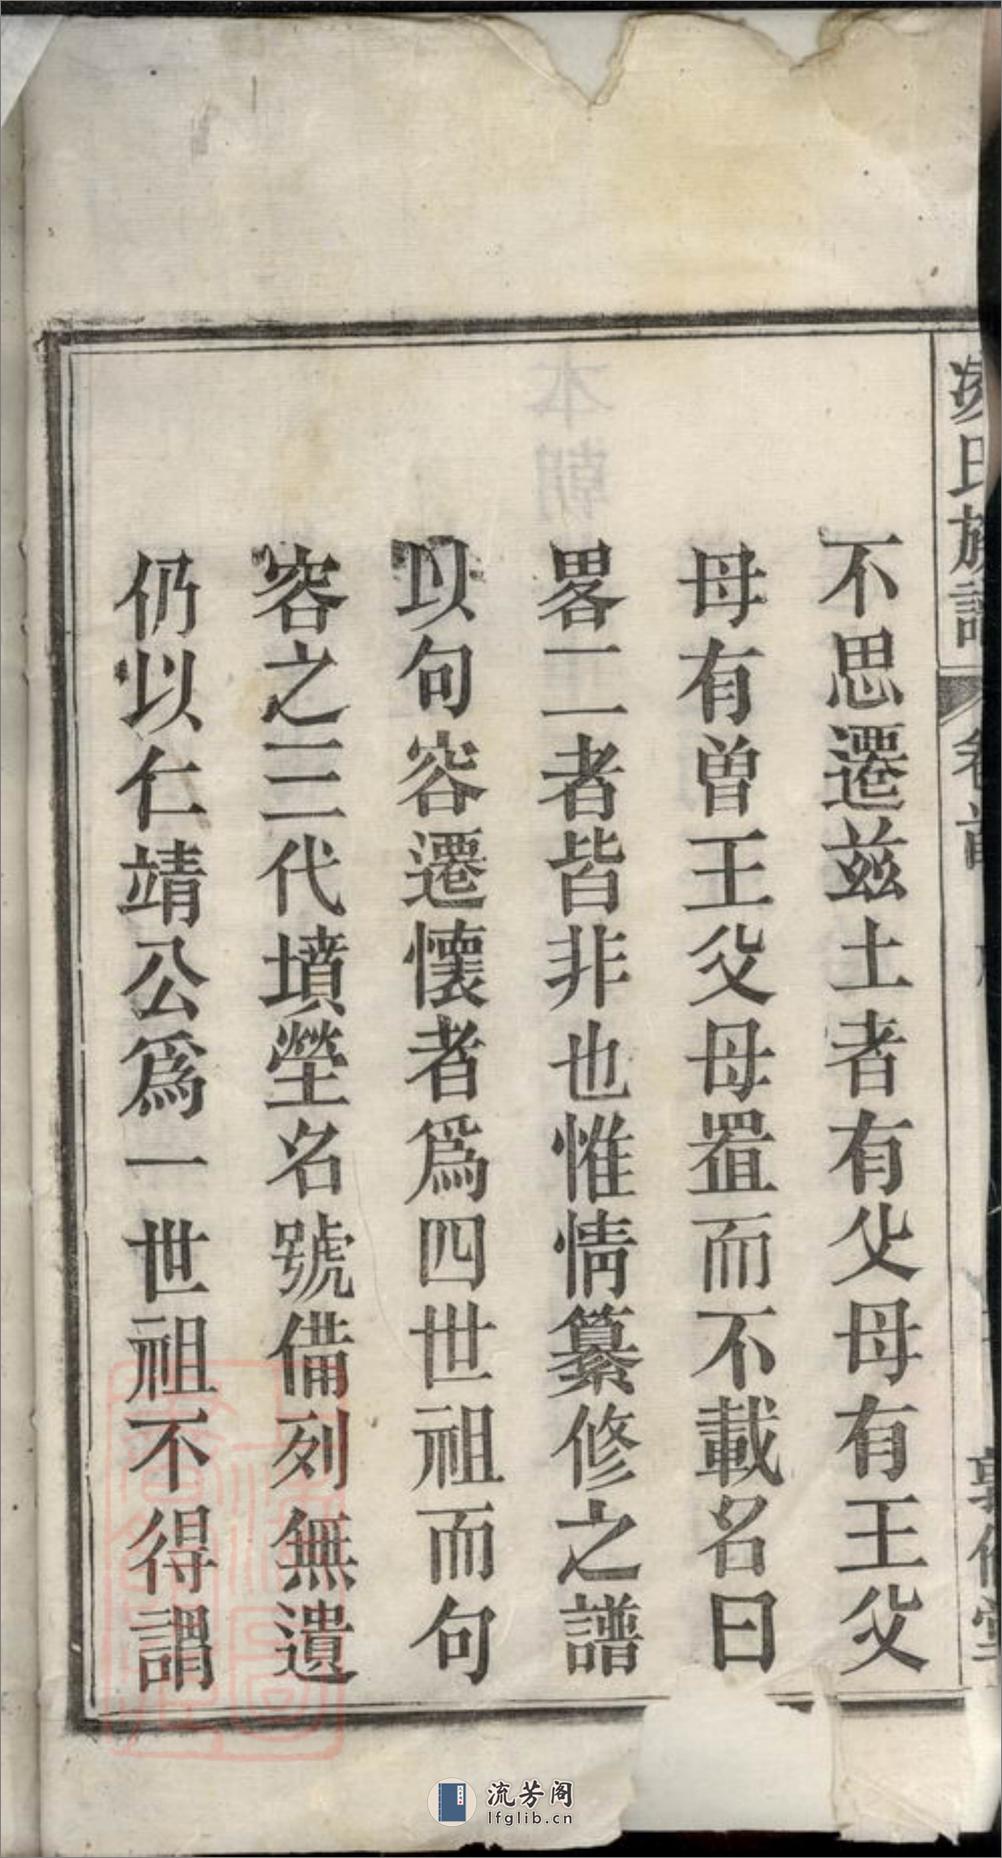 不思遷兹土者有父母有王父
母有曽王父母置而不載名曰
畧二者皆非也惟情纂修之譜
以句容遷懷者爲四世祖而句
容之三代墳塋名號備列無遺
仍以仁靖公爲一世祖不得謂
氏族譜
卷首
本朝
流芳阁
lfglib.cn